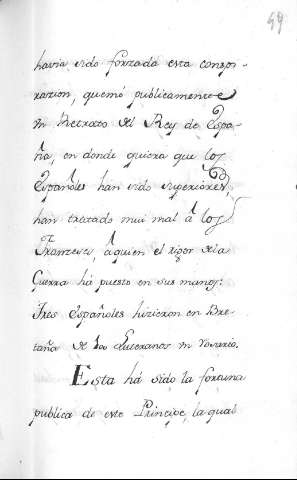 59
havia sido forzada esta conspi-
razion, quemó publicamente
un Retrato del Rey de Espa-
ña, en donde quiera que los
Españoles han sido superiores,
han tratado mui mal â los
Franzeses, â quien el rigor dela
Guerra há puesto en sus manos:
Tres Españoles hizieron en Bre-
taña de los Luteranos un Rosario.
Esta há sido la fortuna
publica de este Principe, la qual